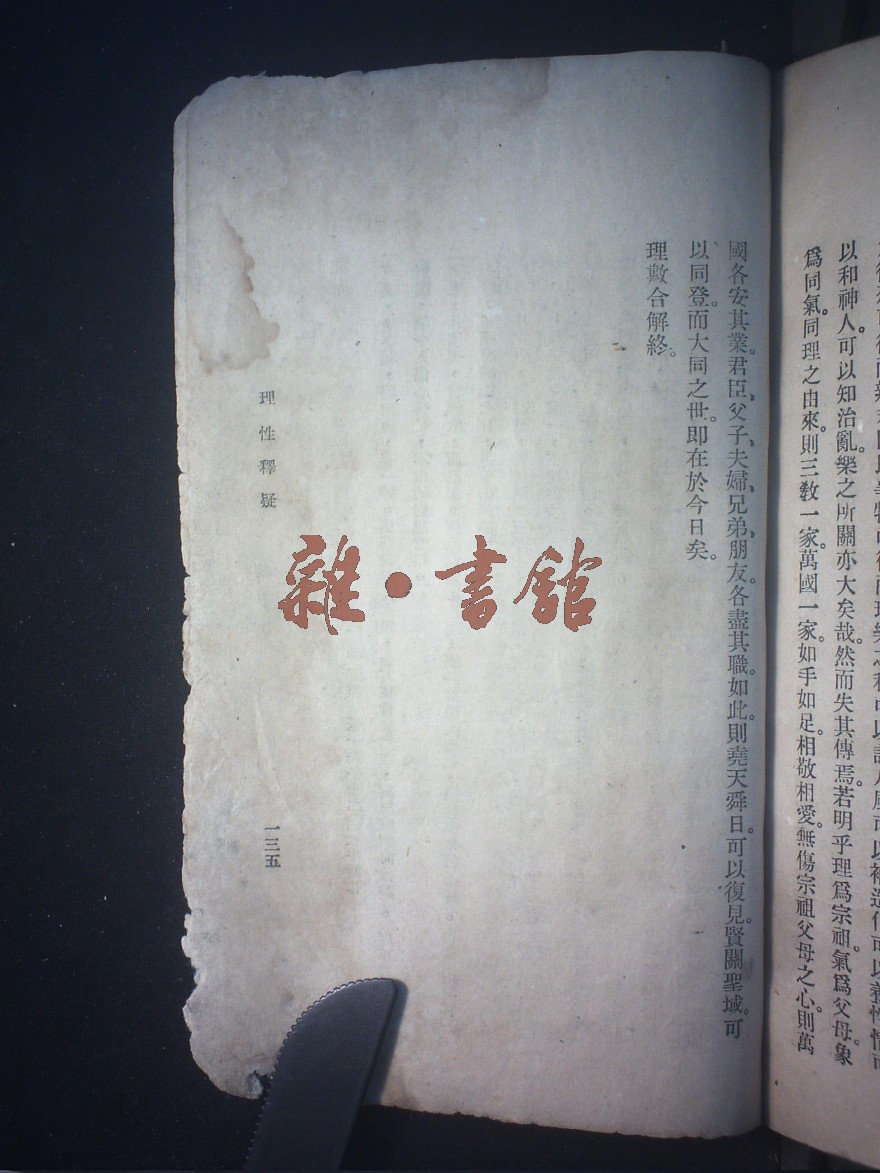 以和神人。可以知治亂。樂之所關亦大矣哉。然而失其傳焉。若明乎理爲宗祖。氣爲父母。象
爲同氣。同理之由來。則三教一家。萬國一家。如手如足。相敬相愛。無傷宗祖父母之心。則萬
國各安其業。君臣、父子、夫婦、兄弟、朋友。各盡其職。如此。則堯天舜日。可以復見。賢關聖域。可
以同登。而大同之世。即在於今日矣。
理數合解終。
理性釋疑
一三五
雜·書館